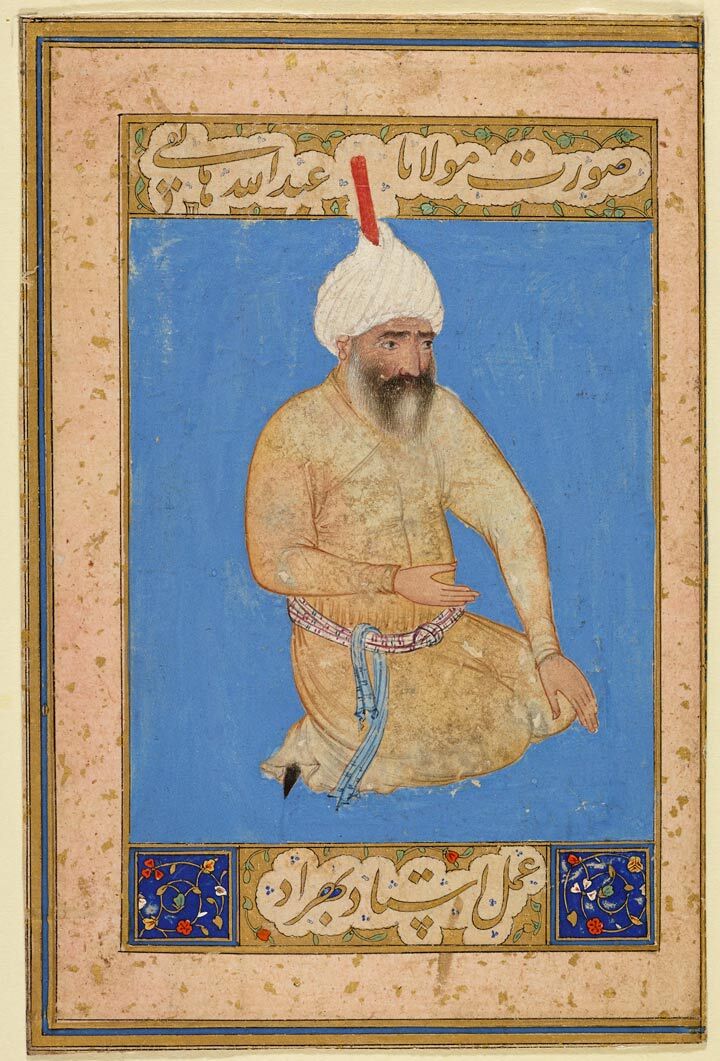 صورت مولانا عبدالله هاتفی
عمل استاد بهزاد